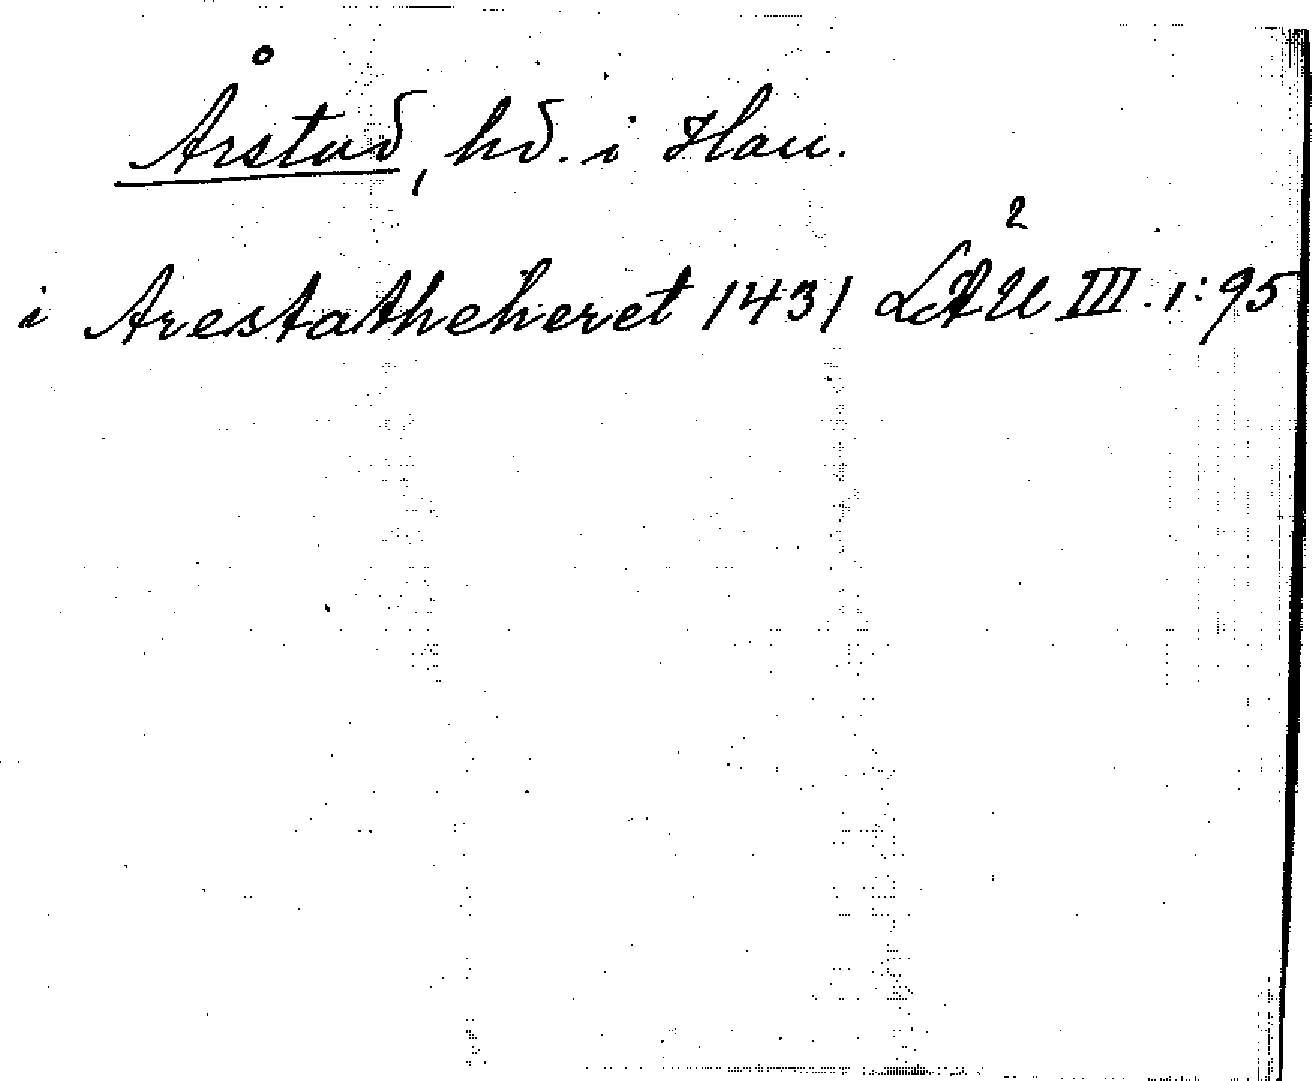 Årstad, hd. i Hall.
i Arestatheheret 1431 LÄU² III. 1:95